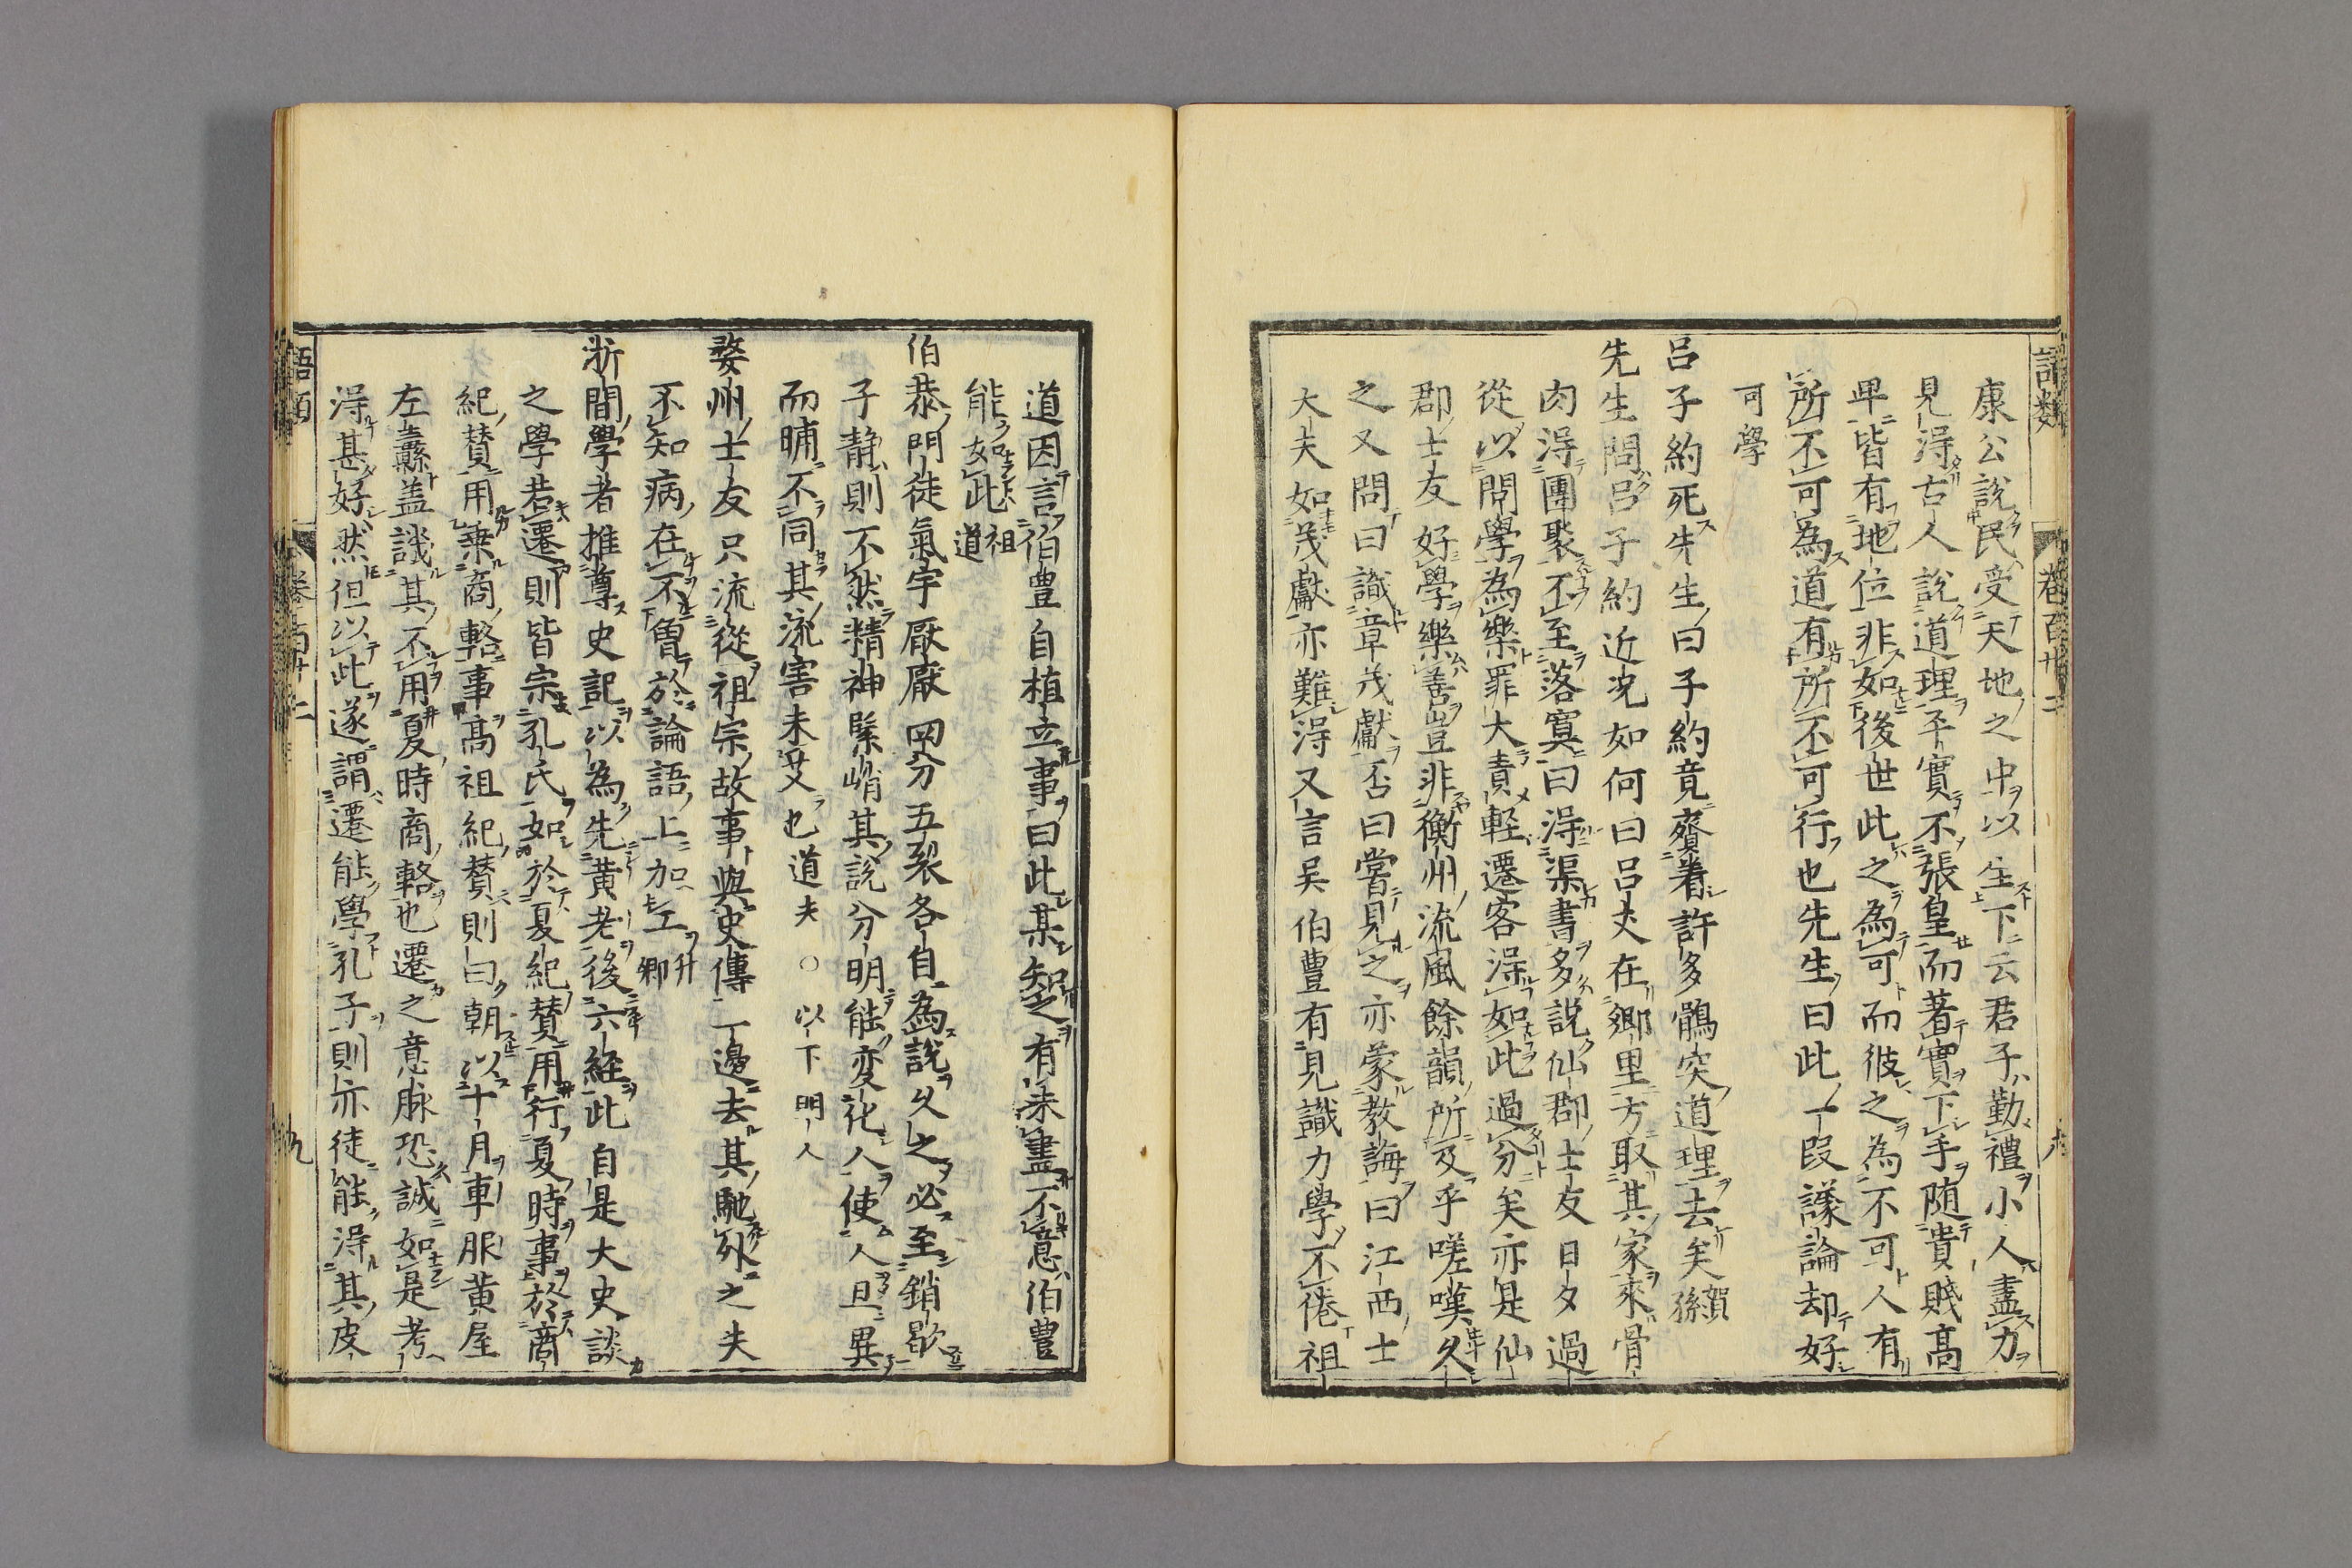 康公說民受天地之中以生下云君子勤禮小人盡力
見得古人說道理平實不張皇而著實下手随貴賤高
卑皆有地位非如後世此之為可而彼之為不可人有
所不可為道有所不可行也先生曰此一段議論却好
可學
呂子約死先生曰子約竟賫着許多鶻突道理去矣賀孫
先生問呂子約近况如何曰呂丈在鄉里方取其家來骨
肉得團聚不至落寞曰得渠書多說仙郡士友日夕過
從以問學為樂罪大責軽遷客得如此過分矣亦是仙
郡士友好學樂善豈非衡州流風餘韻所及乎嗟嘆久
之又問曰識章茂獻否曰嘗見之亦蒙教誨曰江西士
大夫如茂獻亦難得又言吴伯豊有見識力學不倦祖
道因言伯豊自植立事曰此某知之有未盡不意伯豊
能如此祖道
伯恭門徒氣宇厭厭四分五裂各自為說久之必至銷歇
子静則不然精神緊峭其說分明能変化人使人旦異
而晡不同其流害未艾也道夫 ○ 以下明人
婺州士友只流從祖宗故事與史傳一邊去其馳外之失
不知病在不曾於論語上加工升卿
浙間學者推尊史記以為先黄老後六經此自是大史談
之學若遷則皆宗孔氏如於夏紀賛用行夏時事於商
紀賛用乗商輅事髙祖紀賛則曰朝以十月車服黄屋
左纛盖譏其不用夏時商輅也遷之意脉恐誠如是考
得甚好然但以此遂謂遷能學孔子則亦徒能得其皮
語類 卷百廿二 九